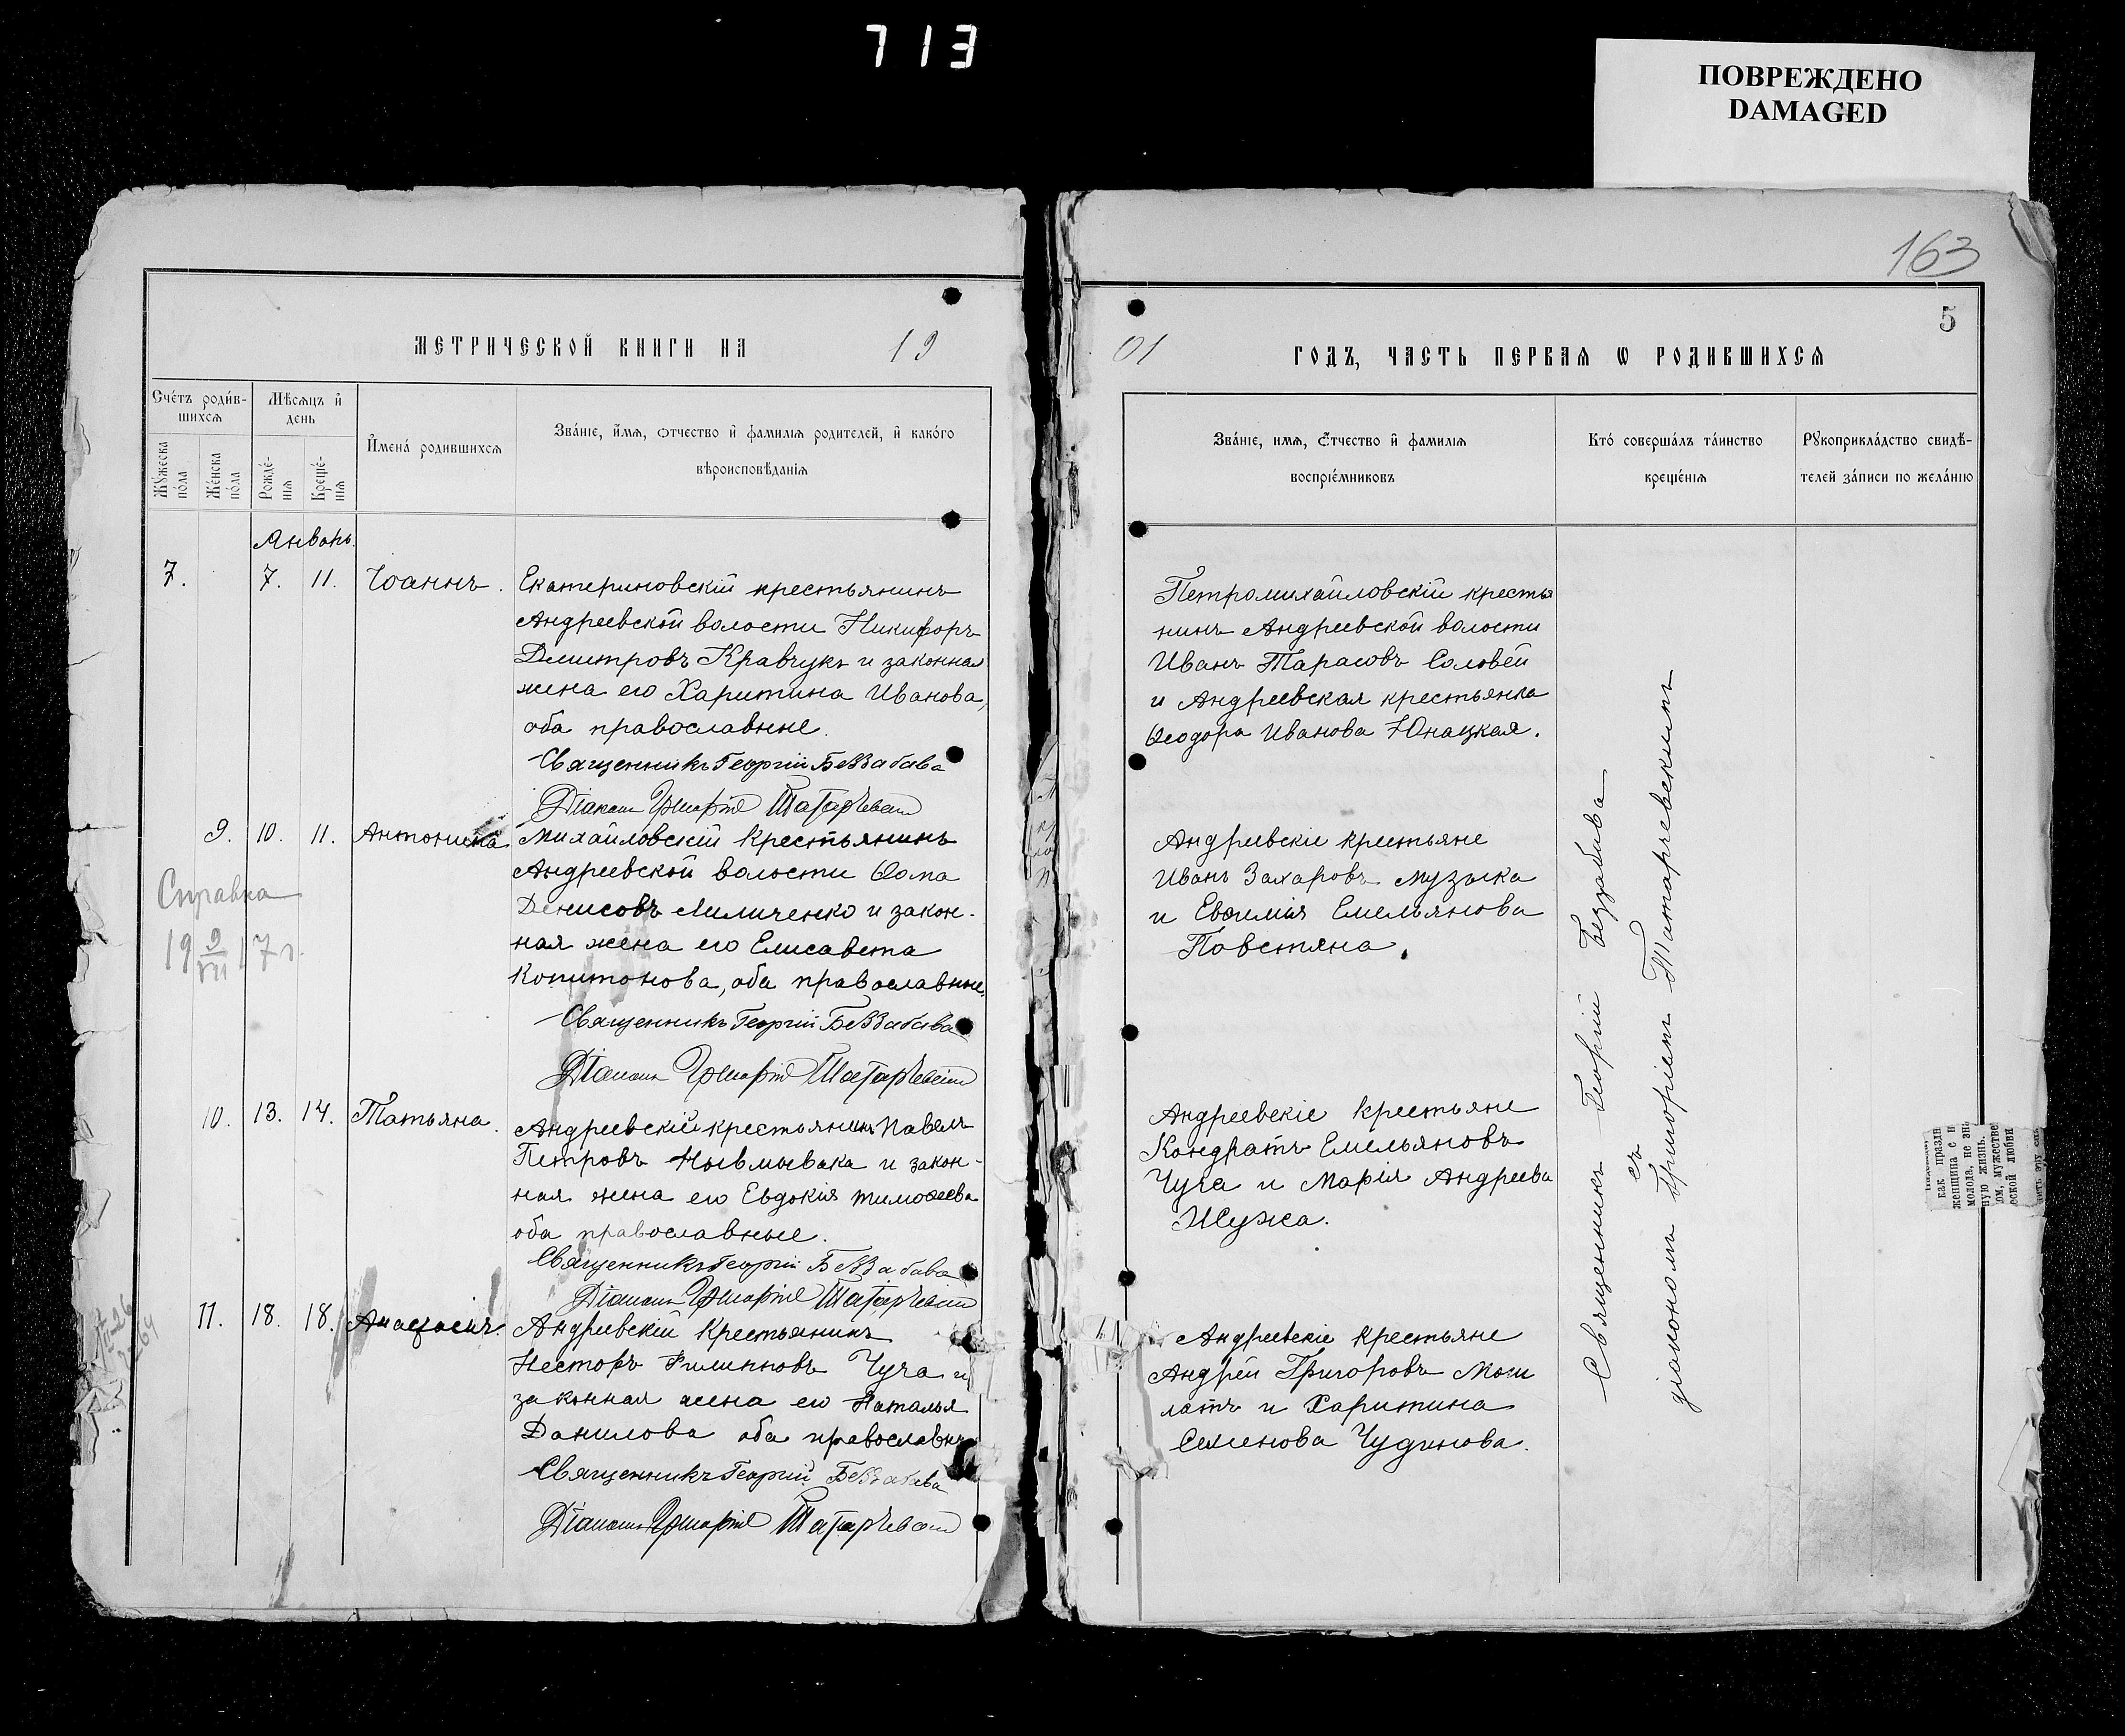 713
ПОВРЕЖДЕНО
DAMAGED
163
5
МЕТРИЧЕСКОЙ КНИГИ НА 19
01 ГОДЪ, ЧАСТЬ ПЕРВАЯ Ѡ РОДИВШИХСЯ
Счетъ родившихся
Мѣсяцъ и день
Имена родившихся
Званіе, имя, отчество и фамилія родителей, и какого вѣроисповѣданія
Мужеска пола
Женска пола
Рожденія
Крещенія
Званіе, имя, отчество и фамилія воспріемниковъ
Кто совершалъ таинство крещенія
Рукоприкладство свидѣтелей записи по желанію
Январь.
7. 7. 11. Іоаннъ. Екатериновскій крестьянинъ
Андреевской волости Никифоръ
Димитровъ Кравчукъ и законная
жена его Харитина Иванова,
оба православные.
Священникъ Георгій Беззабава
Діаконъ Григорій Татарчевскій
Петромихайловскій кресть
нинъ Андреевской волости
Иванъ Тарасовъ Соловей
и Андреевская крестьянка
Ѳеодора Иванова Юнацкая.
9. 10. 11. Антонина Михайловскій крестьянинъ
Андреевской волости Ѳома
Денисовъ Лиличенко и закон-
ная жена его Елисавета
Капитонова, оба православные.
Священникъ Георгій Беззабава
Діаконъ Григорій Татарчевскій
Справка
19 9/VII 17 г.
Андреевскіе крестьяне
Иванъ Захаровъ Музыка
и Евѳимія Емельянова
Повстяна.
10. 13. 14. Татьяна. Андреевскій крестьянинъ Павелъ
Петровъ Нывмывака и закон-
ная жена его Евдокія Тимоѳеева
оба православные.
Священникъ Георгій Беззабава
Діаконъ Григорій Татарчевскій
Андреевскіе крестьяне
Кондратъ Емельяновъ
Чуча и Марія Андреева
Жужа.
11. 18. 18. Анастасія. Андреевскій крестьянинъ
Несторъ Филипповъ Чуча и
законная жена его Наталья
Данилова оба православн
Священникъ Георгій Беззабава
Діаконъ Григорій Татарчевскій
Андреевскіе крестьяне
Андрей Григоровъ Моги
латъ и Харитина
Семенова Чудинова.
Священникъ Георгій Беззабава
съ
діакономъ Григоріемъ Татарчевскимъ
как праздн
женщина с н
молода, не зн
ную жизнь.
ом, мужестве
ской любви